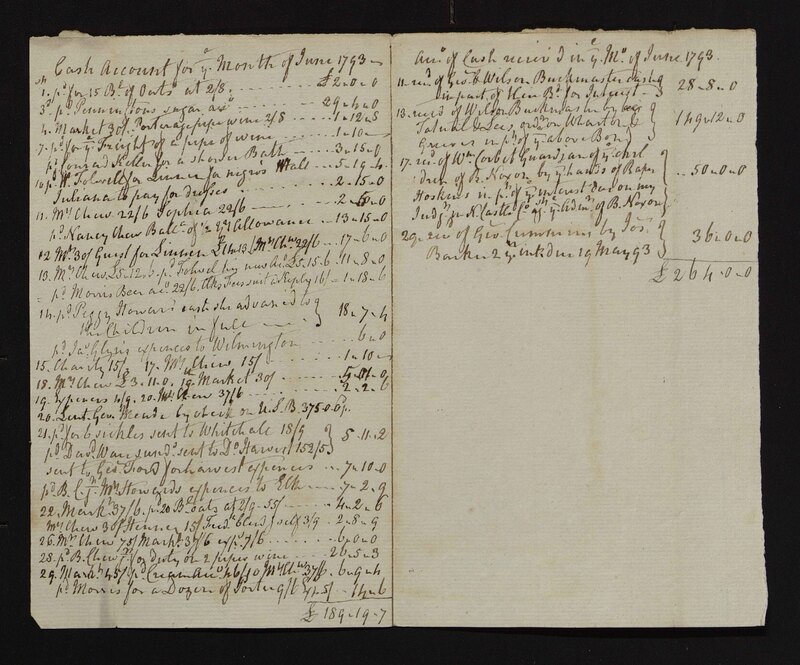 Cash Account for ye Month of June 1793
1. pd for 15 Bl of Oats at 2/8. £2..0..0
3d pd Penningtons sugar acct 29..4..0
4. Market 30/. Porterage pipe wine 2/8 1..12..5
7. pd for ye Freight of a pipe of wine 1..10..
pd Conrad Keller for a shower Bath 3..15..0
10. pd W. Folwell for Linnen for negros W.Hall 5..19..4
Juliana to pay for dresses 2..15..0
11. Mrs Chew 22/6 Sophia 22/6 2..5..0
pd Nancy Chew Balle of Allowance 13..15..0
12. Mr 30/ Guest for Linnen £ Mrs Chew 22/6 17..6..0
13. Mrs Chew £5..12..6. pd Folwell my new Act £5..15..6 11..8..0
pd Morris Beer act 22/6, Clks Fees suit a Repley 16/ 1..18..6
14. pd Peggy Howards cash she advanced to
the Children in full 18..7..4
pd Jas Glyns expences to Wilmington 6..0
15. Charity 15/. 17. Mrs Chew 15/ 1..10..
18. Mrs Chew £3..11..0. 19. Market 30/
19. Expences 4/9. 20. Mrs Chew 37/6 2..2..6
20. Lent Geo. Meade by check on U.S.B.
21. pd for 6 sickles sent to Whitehall 18/9
pd Davd Ware sunds sent to Do Harvest 52/5 5..11..2
sent to Geo. Ford for harvest expences 7..10..0
pd B. C. Jr Mrs Howards expences to Elk 7..2..9
22. Markt 37/6 pd 20 Bl oats at 2/9 55/ 4..2..6
Mrs Chew 30/ Henney 15/ self 3/9 2..8..9
26. Mrs Chew 75/ Markt 37/6 exps 7/6 6..0..0
28. pd B. Chew Jr for duty on 2 pipes wine 26..5..3
29. Markt 45/ pd Cream Act 46/10 Mrs Chew 37/6 6..9..4
pd Morris for a Dozen of Porter 14..6
£189..19..7
Amt of Cash receiv'd in ye Mo of June 1793.
11. recd of Geo & Wilson Buckmaster
in part of their Bd for Interest 28..8..0
13. recd of Wilson Buckmaster by
Tatnal & Lees order on Wharton &
Greeves in pt of ye above Bond 149..12..0
17. recd of Wm Corbet Guardian of ye chil
dren of B. Noxon by ye hands of Raper
Hoskins in pt of ye interest due on my
Judgt in N Castle Co agt ye Admrs of B. Noxon 50..0..0
29. rec of Geo. Cummins by Jos.
Barker 2 yrs intt due 19 May 93 36..0..0
£264..0..0